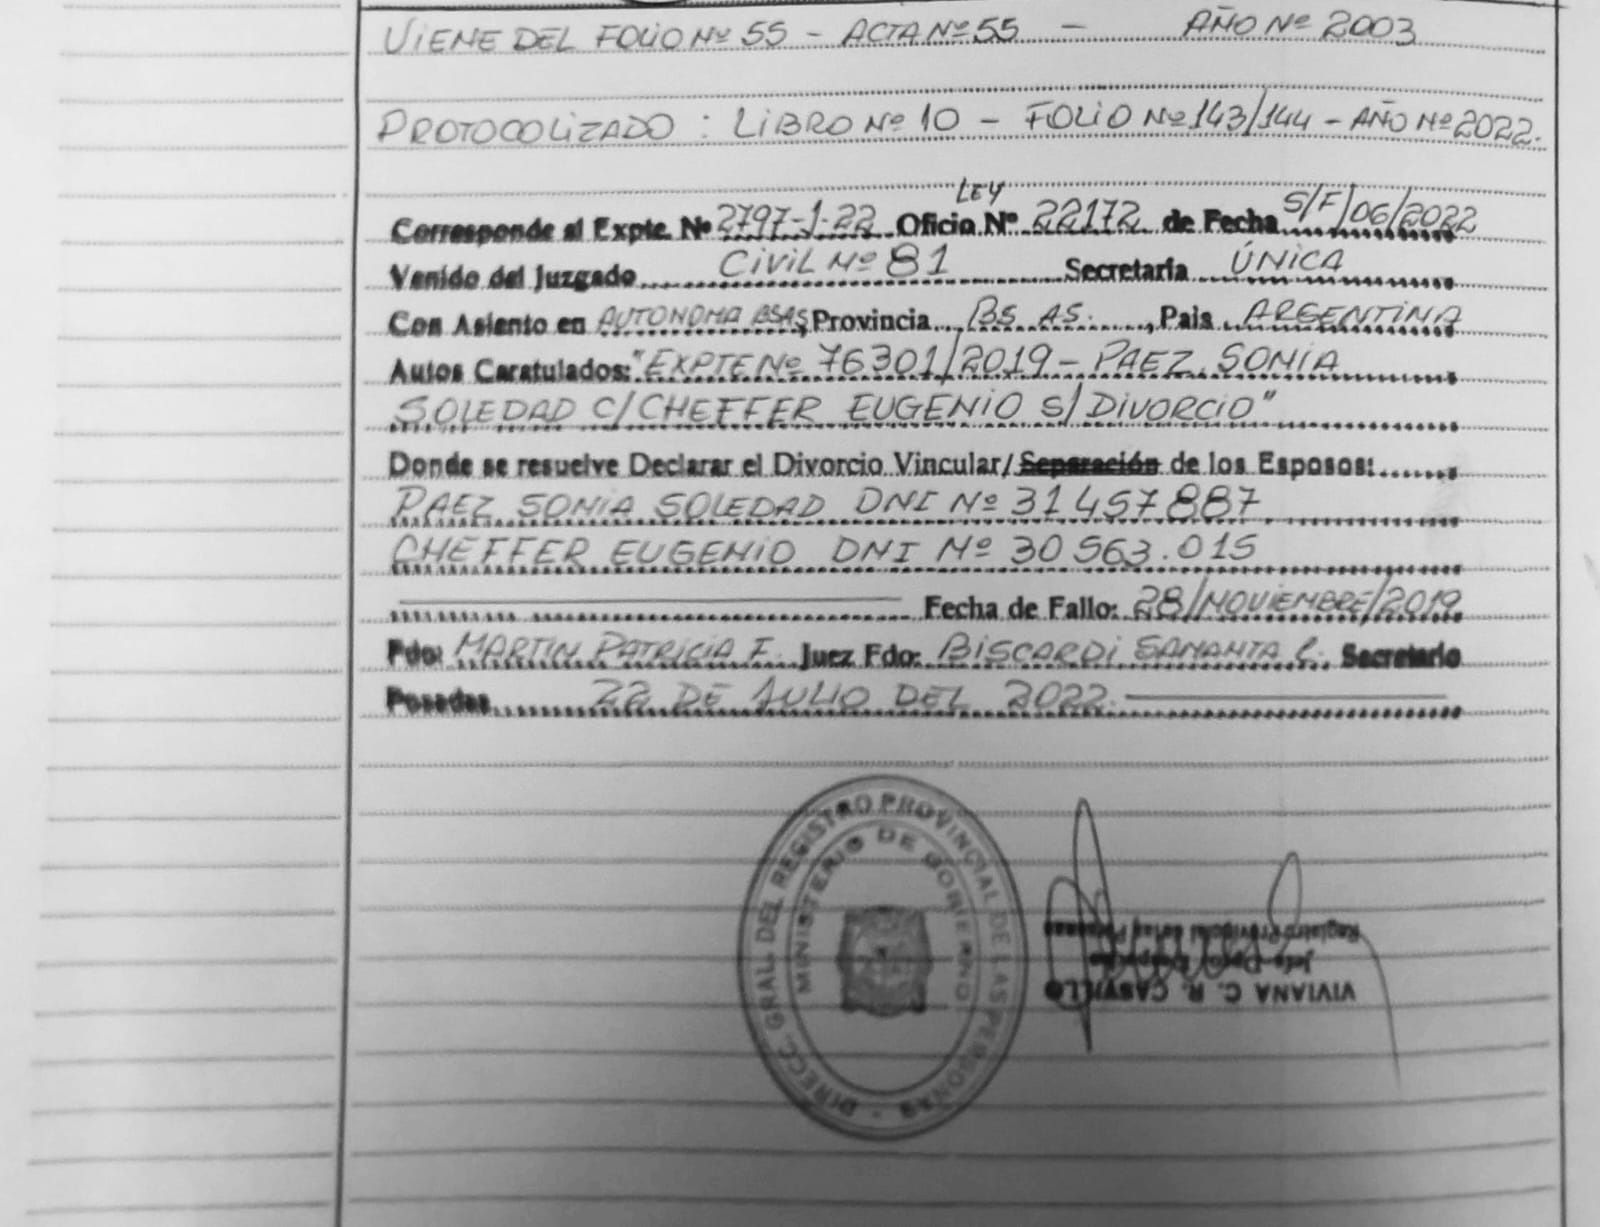 VIENE DEL FOLIO Nº 55 - ACTA Nº 55 - AÑO Nº 2003
PROTOCOLIZADO : LIBRO Nº 10 - FOLIO Nº 143/144 - AÑO Nº 2022.
LEY
Corresponde al Expte. Nº 2797-J-22 Oficio Nº 22172 de Fecha S/F/06/2022
Venido del Juzgado CIVIL Nº 81 Secretaria ÚNICA
Con Asiento en AUTONOMA BSAS, Provincia BS. AS. , Pais ARGENTINA
Autos Caratulados: "EXPTE Nº 76301/2019 - PAEZ, SONIA
SOLEDAD C/CHEFFER EUGENIO S/DIVORCIO"
Donde se resuelve Declarar el Divorcio Vincular/Separación de los Esposos:
PAEZ SONIA SOLEDAD DNI Nº 31457887
CHEFFER EUGENIO DNI Nº 30563.015
Fecha de Fallo: 28/NOVIEMBRE/2019
Fdo: MARTIN PATRICIA F. Juez Fdo: BISCARDI SAMANTA C. Secretario
Posadas 22 DE JULIO DEL 2022.
DIRECC. GRAL. DEL REGISTRO PROVINCIAL DE LAS PERSONAS
MINISTERIO DE GOBIERNO
VIVIANA C. R. CASTILLO
Jefe Dpto.
Registro Provincial de las Personas